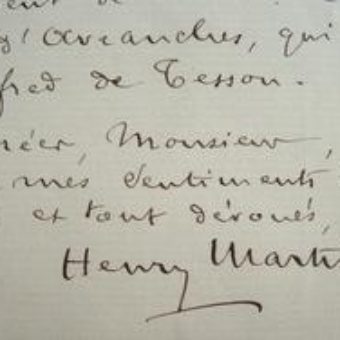 ent de
d'Avranches, qui
fred de Tesson.
réer, Monsieur,
mes sentiments
et tout dévoués,
Henry Mart